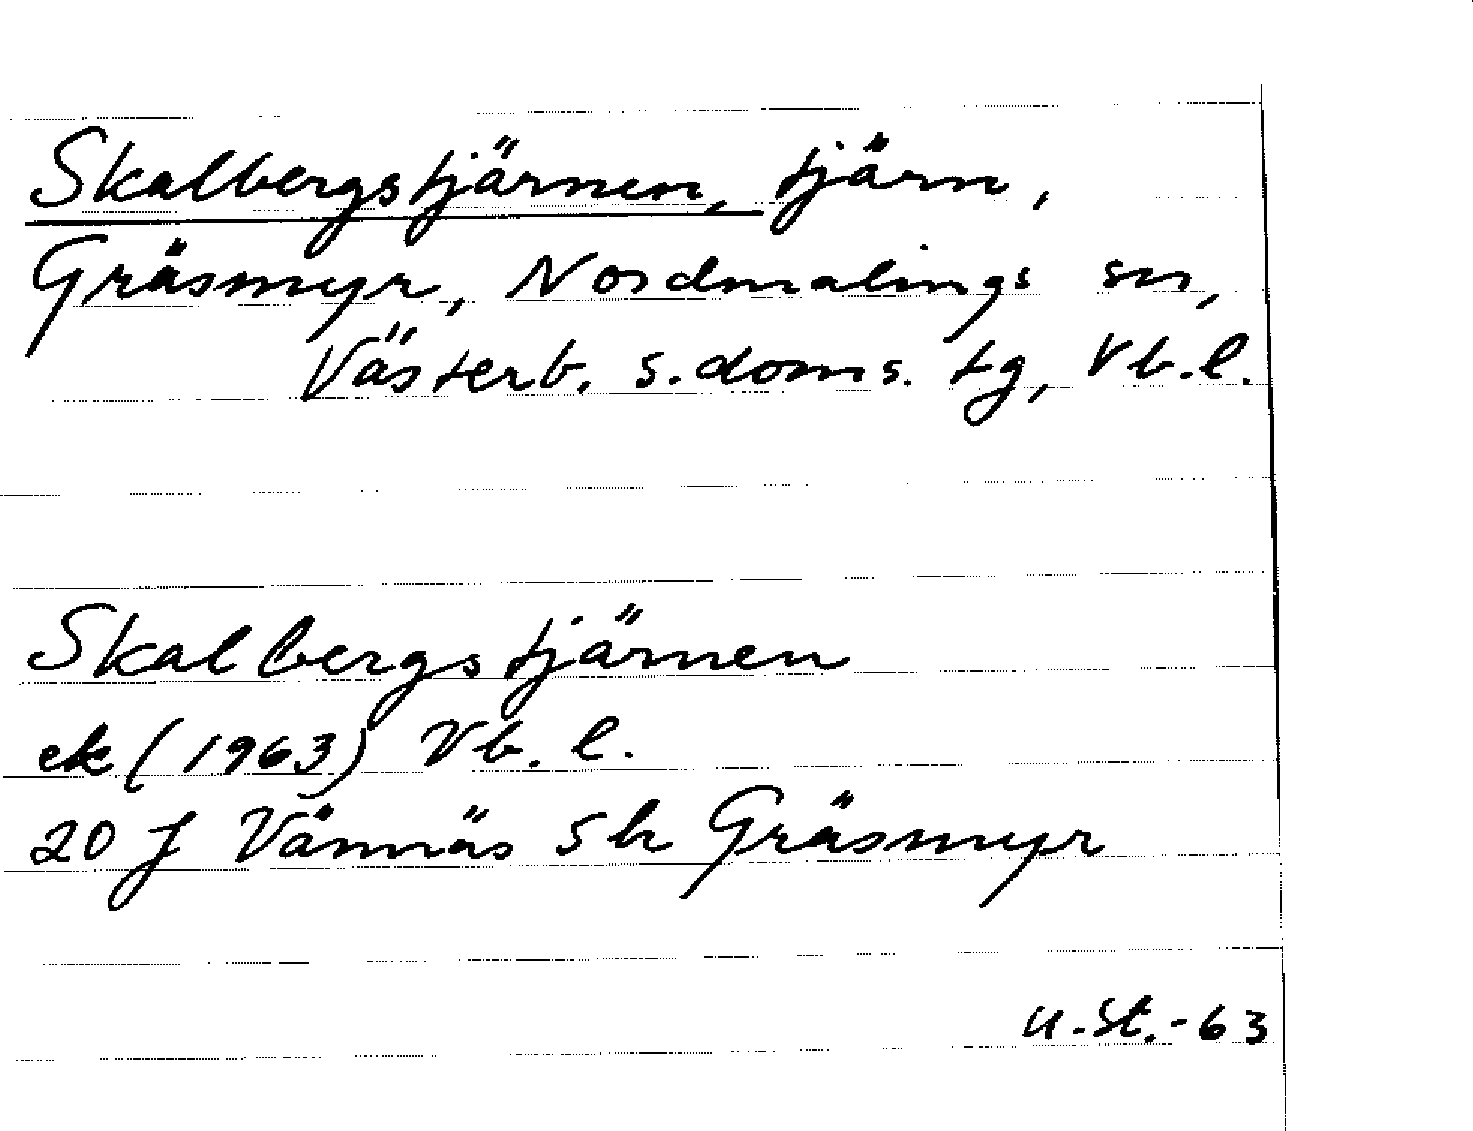 Skalbergstjärnen, tjärn,
Gräsmyr, Nordmalings sn,
Västerb. s. doms. tg, Vb. l.
Skalbergstjärnen
ek (1963) Vb. l.
20 J Vännäs 5 h Gräsmyr
U. St. -63